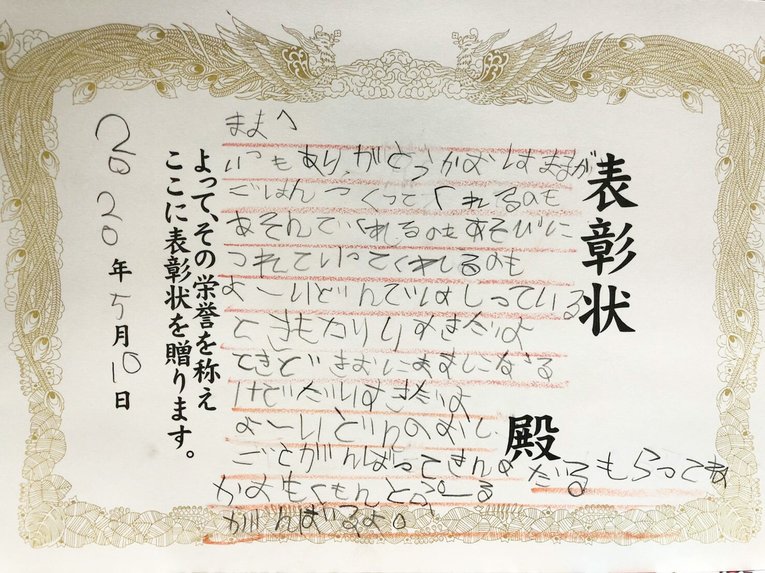 表彰状
殿
ままへ
いつもありがとうかおはままが
ごはんつくってくれるのも
あそんでくれるのもあそびに
つれていってくれるのも
よーいどんではしっている
ときもかりりすきだよ
ときどきままになる
けどだいすきだよ
よーいどんのおし
ごとがんばってきんめだるもらってね
かおもくもんとぷーる
がんばるよ。
よって、その栄誉を称え
ここに表彰状を贈ります。
2020年5月10日